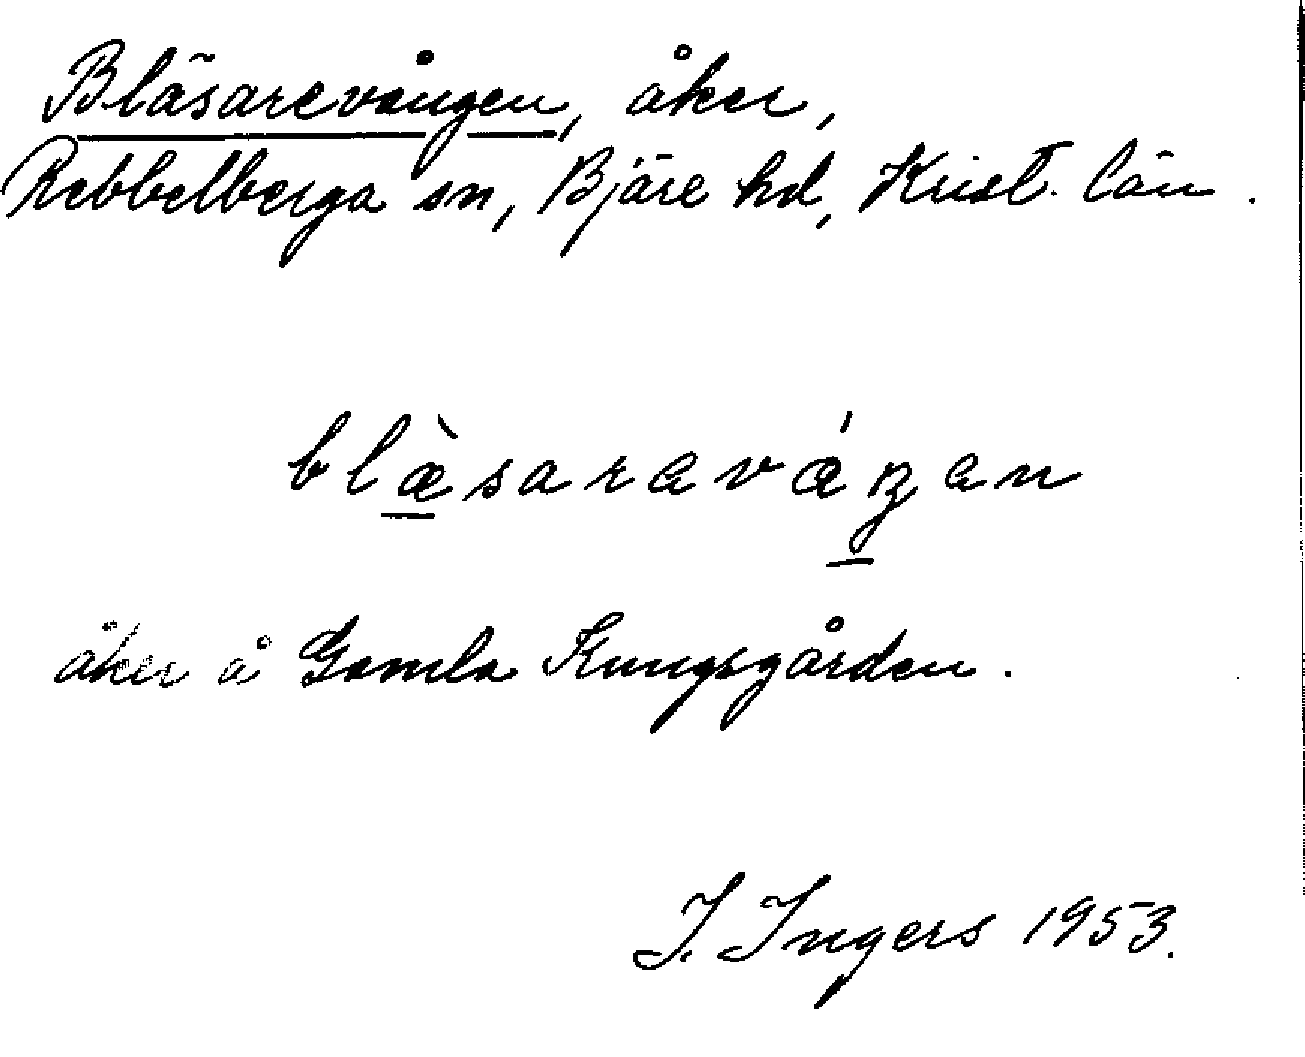 Bläsarevången, åker,
Rebbelberga sn, Bjäre hd, Krist. län.
blæ̀saraváŋan
åker å Gamla Kungsgården.
I. Ingers 1953.